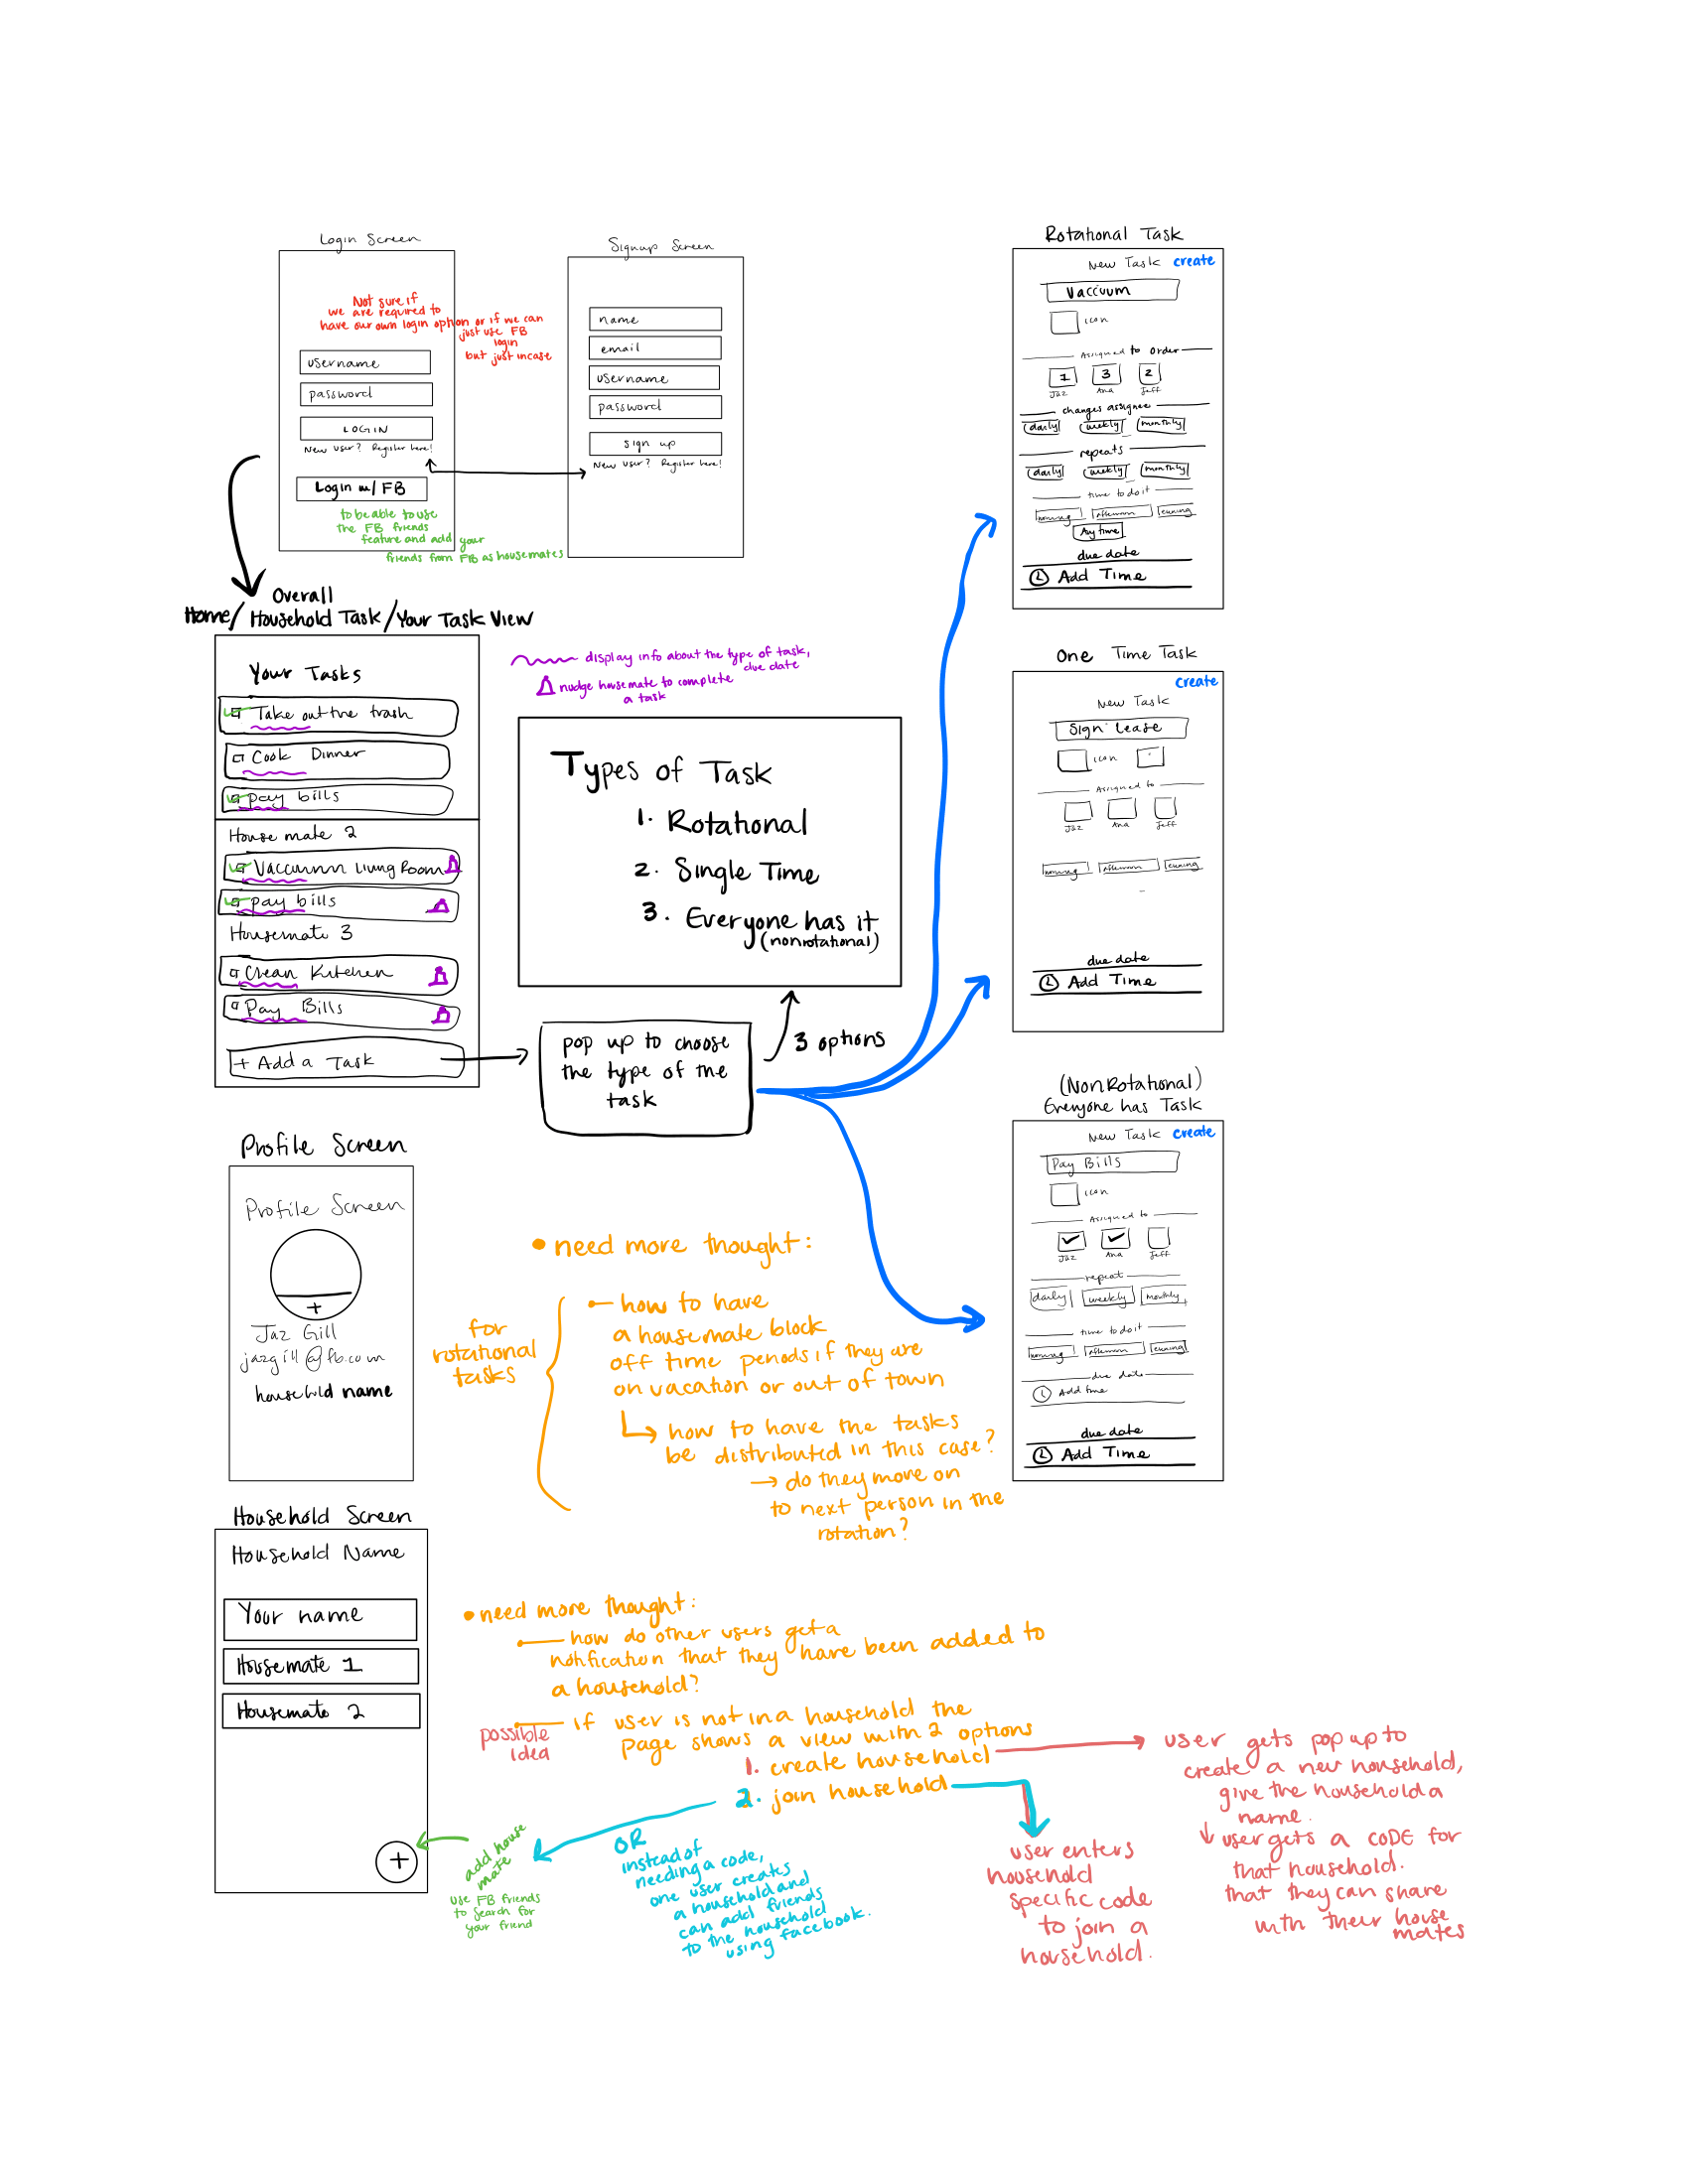 Login Screen
Not sure if
we are required to
have our own login option or if we can
just use FB
login
but just incase
username
password
LOGIN
New user? Register here!
Login w/ FB
to be able to use
the FB friends
feature and add your
friends from FB as housemates
Signup Screen
name
email
username
password
sign up
New user? Register here!
Overall
Home/ Household Task/Your Task View
Your Tasks
Take out the trash
Cook Dinner
pay bills
House mate 2
Vaccumm living Room
pay bills
Housemate 3
Clean Kitchen
Pay Bills
+ Add a Task
display info about the type of task,
due date
nudge housemate to complete
a task
Types of Task
1. Rotational
2. Single Time
3. Everyone has it
(nonrotational)
3 options
pop up to choose
the type of the
task
Rotational Task
New Task create
Vaccuum
icon
Assigned to Order
1 3 2
Jaz Ana Jeff
changes assignee
daily weekly monthly
repeats
daily weekly monthly
time to do it
morning afternoon evening
Any time
due date
Add Time
One Time Task
create
New Task
Sign Lease
icon
Assigned to
Jaz Ana Jeff
morning afternoon evening
due date
Add Time
(NonRotational)
Everyone has Task
New Task create
Pay Bills
icon
Assigned to
Jaz Ana Jeff
repeat
daily weekly monthly
time to do it
morning afternoon evening
due date
Add time
due date
Add Time
Profile Screen
Profile Screen
+
Jaz Gill
jazgill@fb.com
household name
• need more thought:
for
rotational
tasks
how to have
a housemate block
off time periods if they are
on vacation or out of town
how to have the tasks
be distributed in this case?
→ do they move on
to next person in the
rotation?
Household Screen
Household Name
Your name
Housemate 1
Housemate 2
+
add house
mate
use FB friends
to search for
your friend
• need more thought:
how do other users get a
notification that they have been added to
a household?
possible
idea
if user is not in a household the
page shows a view with 2 options
1. create household
2. join household
OR
instead of
needing a code,
one user creates
a household and
can add friends
to the household
using facebook.
user enters
household
specific code
to join a
household.
user gets pop up to
create a new household,
give the household a
name.
↓ user gets a CODE for
that household.
that they can share
with their house
mates